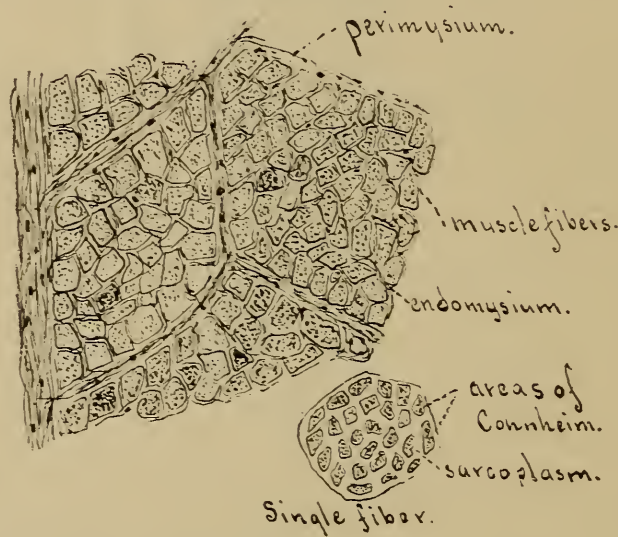 perimysium.
muscle fibers.
endomysium.
areas of
Connheim.
sarcoplasm.
Single fiber.